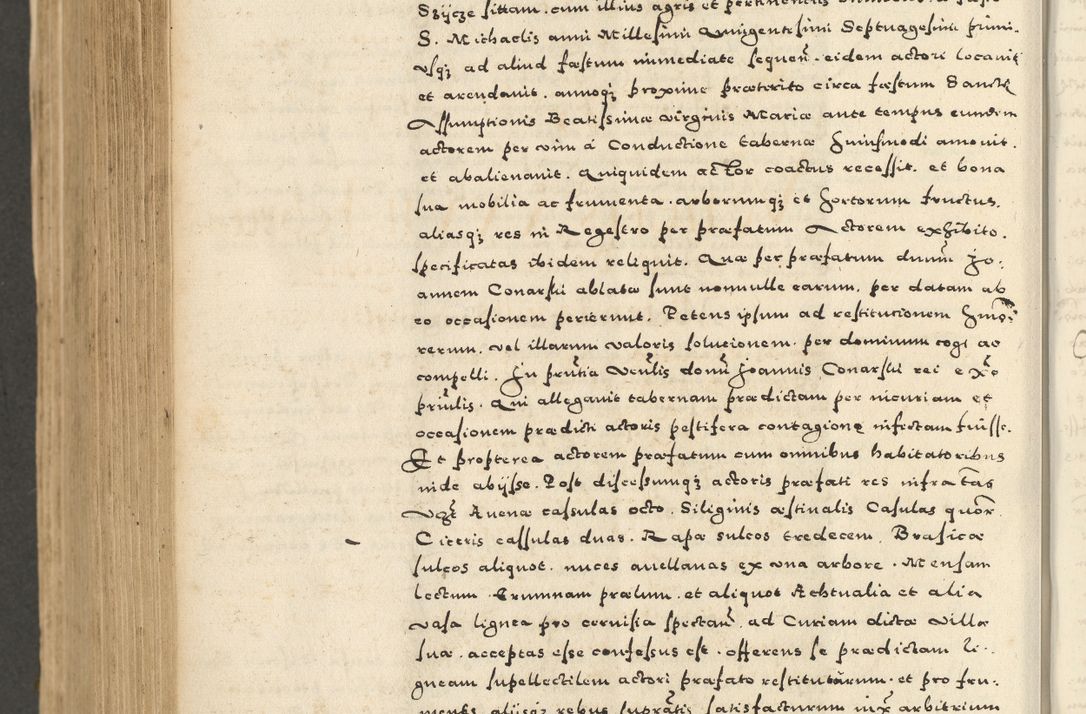 Szÿcze sittam. cum illius agris et pertinentiis
S. Michaelis anni Millesimi Quingentesimi Septuagesimi primi.
vsq₃ ad aliud fæstum immediate sequen̄. eidem actori locauit
et arendauit. annoq₃ proxime præterito circa fæstum Sanctæ
Assumptionis Beatissimæ virginis Mariæ ante tempus eundem
actorem per vim á Conductione tabernæ huiusmodi amouit.
et abalienauit. Quiquidem actor coactus recessit. et bona
sua mobilia ac frumenta. arborumq₃ et hortorum fructus.
aliasq₃ res in Regestro per præfatum Actorem exhibito.
specificatas ibidem reliquit. Quæ per præfatum dnum̄ Jo:
annem Conarskii ablatæ sunt nonnulle earum. per datam ab
eo occasionem perierunt. Petens ipsum ad restitucionem hmōi
rerum. vel illarum valoris solucionem. per dominum cogi ac
compelli. In pn̄tia Ven̄lis domī Joannis Conarskii rei ex
priн̄lis. Qui allegauit tabernam prædictam per incuriam et
occasionem prædicti actoris pestifera contagione infectam fuisse.
Et propterea actorem præfatum cum omnibus habitatoribus
inde abÿsse. Post discessumq₃ actoris præfati res infra tas
Vcꝫt Auenæ cassulas octo. Siliginis æstiualis Casulas quōr
Ciceris cassulas duas. Rapæ sulcos tredecem. Brasicæ
sulcos aliquot. nuces auellanas ex vna arbore. Mensam
lectum. Erumnam prælum. et aliquot Achtualia et alia
vasa lignea pro ceruisia spectan̄. ad Curiam dictæ villæ
suæ. acceptas esse confessus est. offerens se prædictam li-
gneam supellectilem actori præfato restituturum. et pro fru-
mentis alijsq₃ rebus supratis satisfacturum iux̄ arbitrium